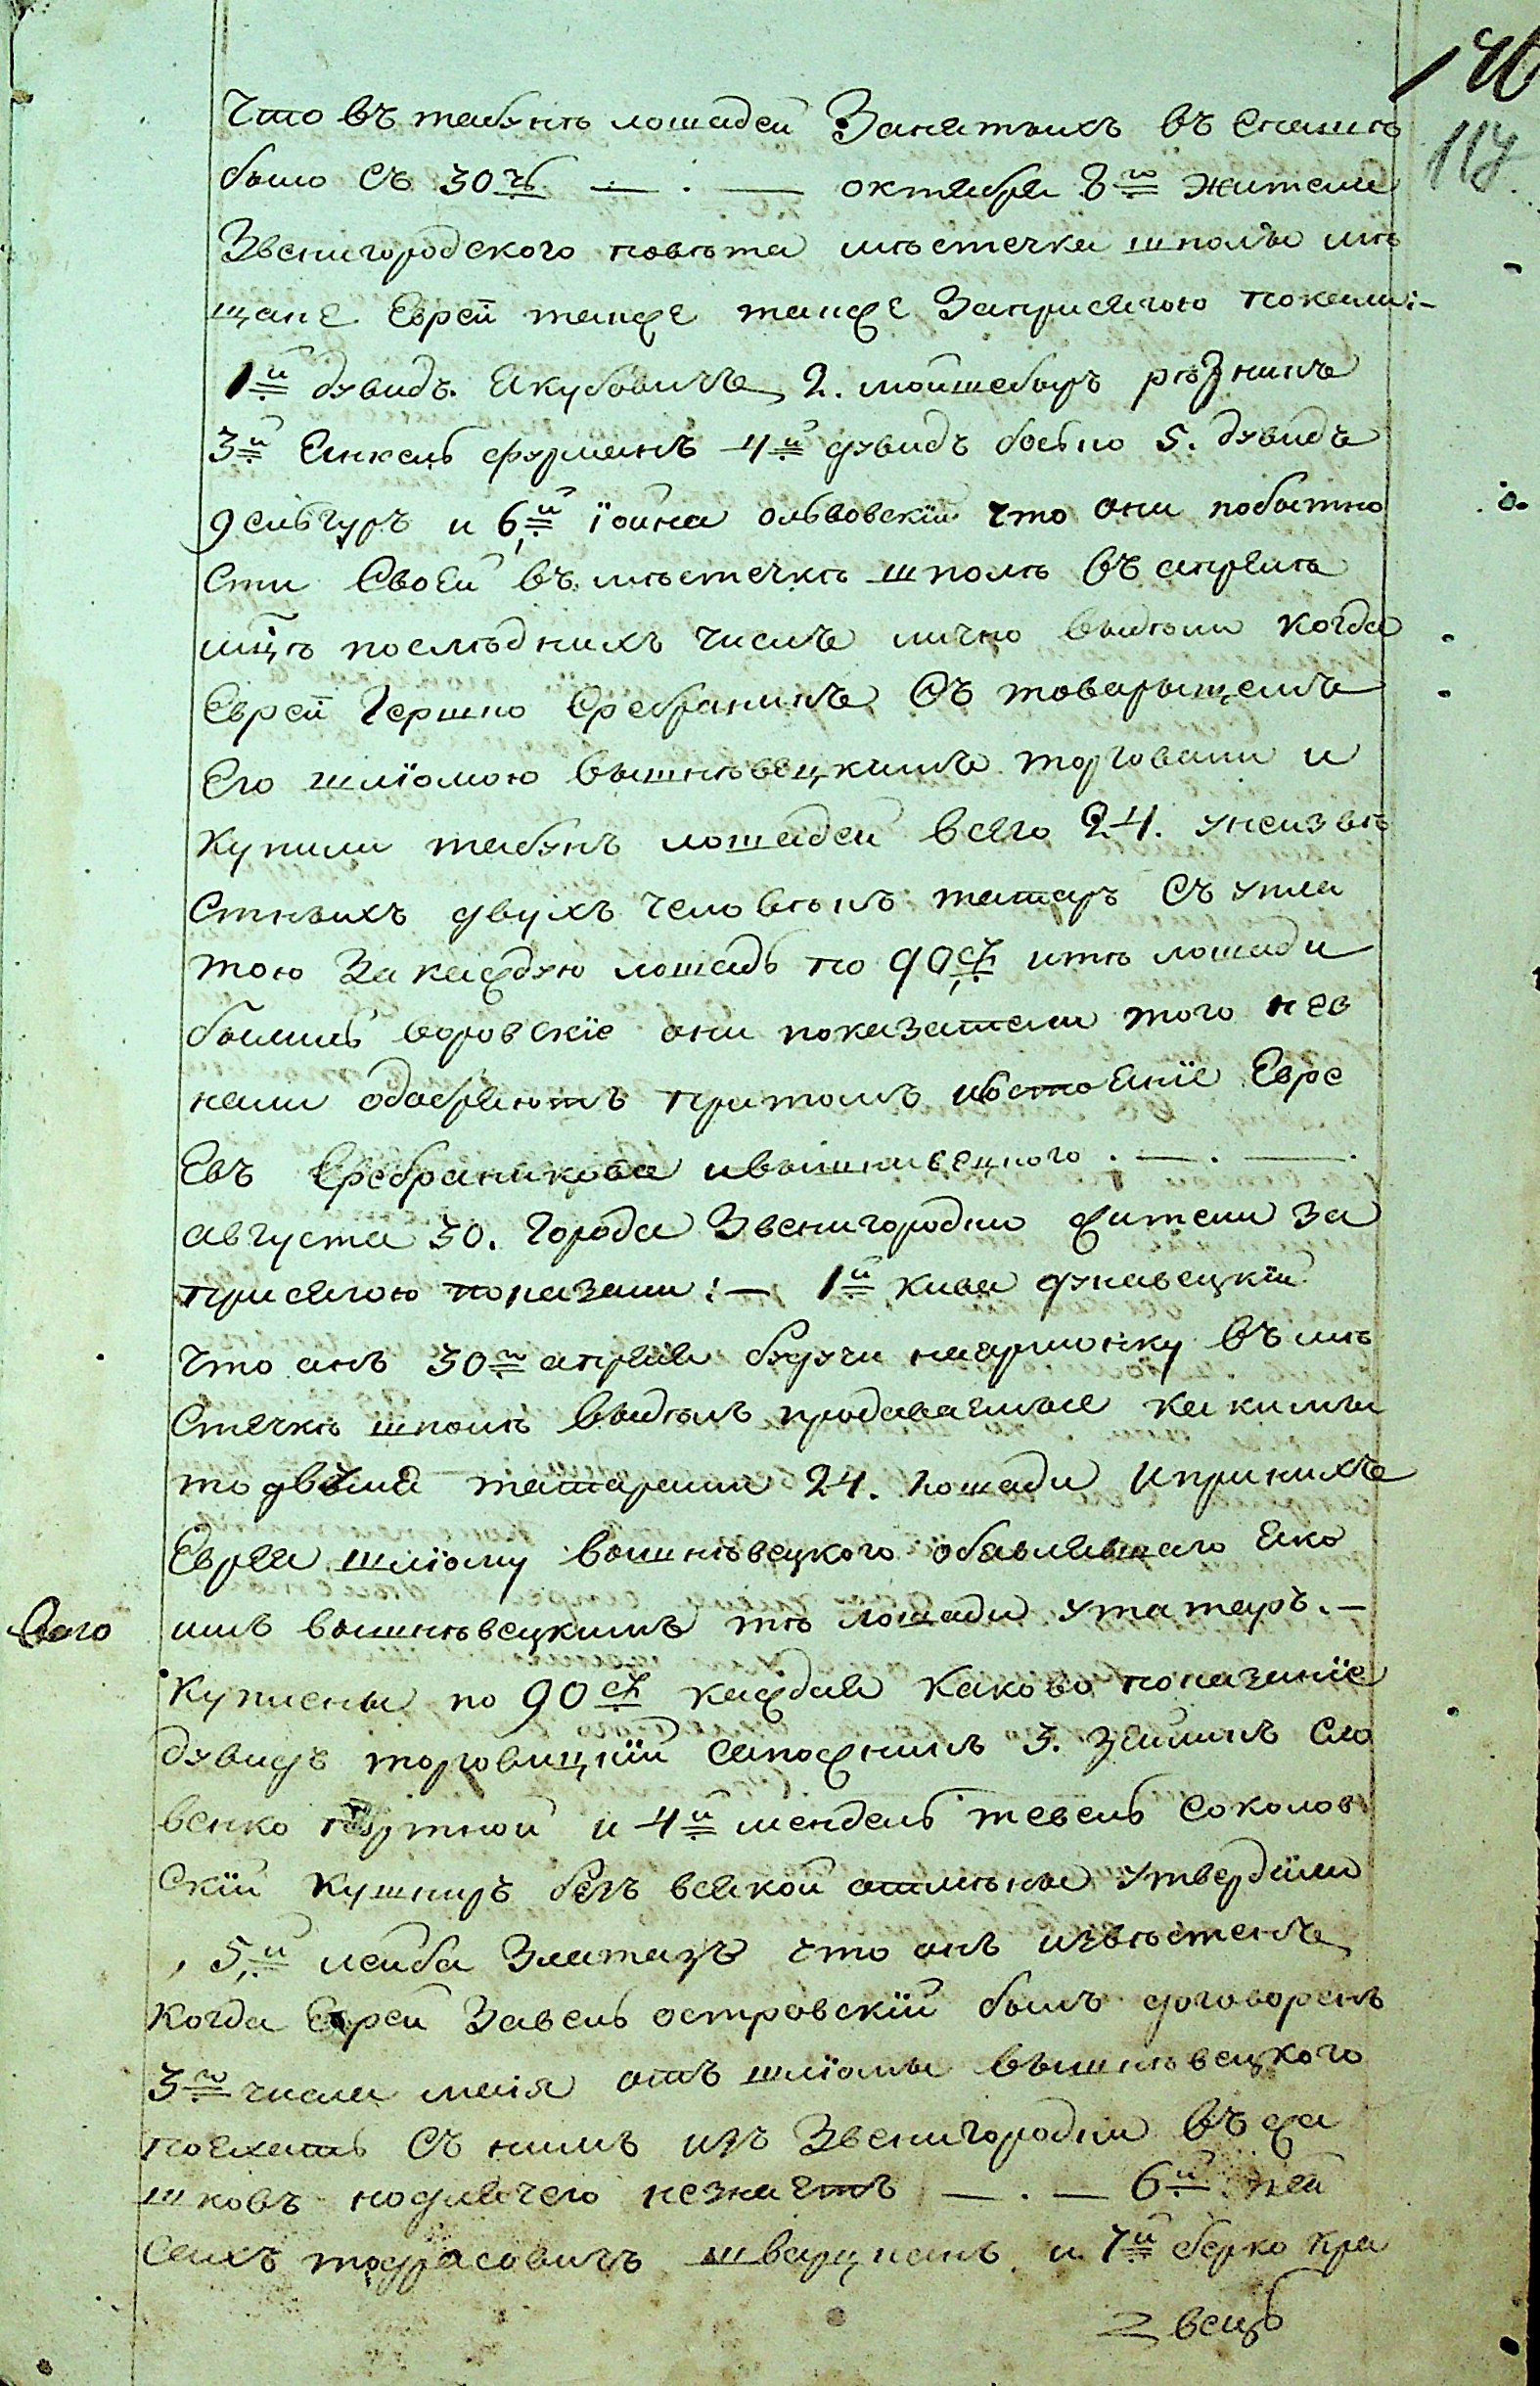 146
117
Что въ табунѣ лошадей Занятыхъ въ Смѣлѣ
было съ 30ть — . — октября 8го жители
Звенигородского повѣта мѣстечка шполы мѣ
щане Еврей также также Заприсягою показали:—
1й дувидъ Якубовичъ, 2. мойшеберъ рѣзникъ
3й Янкель фурманъ 4й дувидъ 5. дувидъ
и 6й іойна ольвовскій что они побытно
сти Своей въ мѣстечкѣ шполѣ въ апрѣлѣ
мцѣ послѣднихъ числъ лично видѣли когда
Еврей Гершко Сребраникъ Съ товарыщемъ
Его шліомою вышнѣвецкимъ торговали и
купили табунъ лошадей всего 24. унеизвѣ
стныхъ двухъ человѣкъ татаръ Съ упла
тою За каждую лошадь по 90 итѣ лошади
былиль воровскіе они показатели того нез
нали одобряютъ притомъ Евре
Евъ Сребраникова ивышнивецкого . — . —
августа 30. города Звенигородки жители за
присягою показали: — 1й кива дунавецкій
что онъ 30го апреля будучи наярмонку въ мѣ
стечкѣ шполѣ видѣлъ продаваемые какими
то двѣма татарами 24. лошади ипринихъ
Еврея шліому вышнѣвецкого объявлявшаго Яко
имъ вышнѣвецкимъ тѣ лошади утатаръ. —
куплены по 90 каждая каково показаніе
дувидъ торговицкій сапожникъ 3. зейликъ Сло
венко и 4й мендель тевель соколов
скій кушниръ безъ всякой отмѣны утвердили
, 5й лейба Златаръ что онъ извѣстенъ
когда Еврей Завель островскій былъ договоренъ
3го числа маія отъ шліомы вышнѣвецкого
поехать Съ нимъ изъ Звенигородки въ жа
шковъ нодлячего незнаетъ — . — 6й
тодрасовичъ шварцманъ и 7й берко кра
вецъ